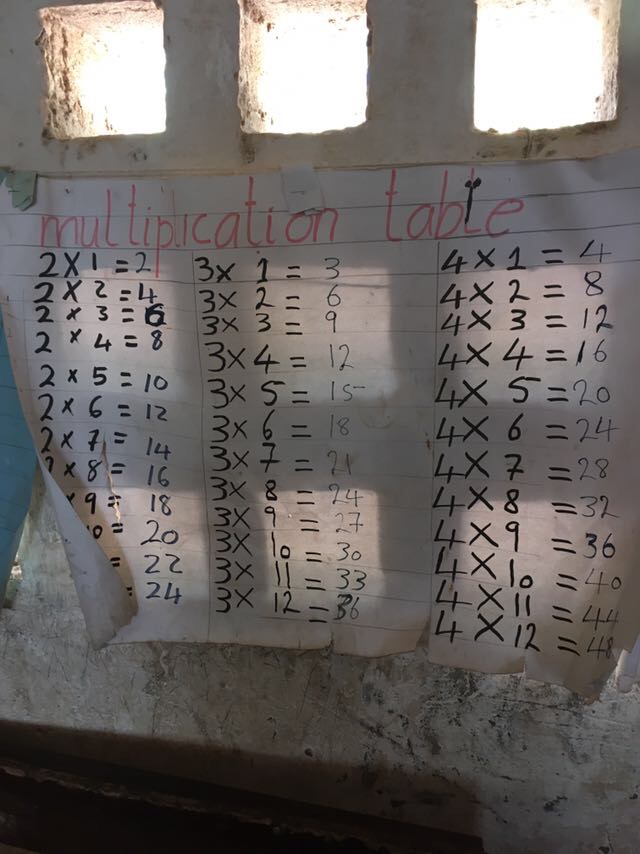 multiplication table
2 X 1 = 2
2 X 2 = 4
2 x 3 = 6
2 x 4 = 8
2 x 5 = 10
2 x 6 = 12
2 x 7 = 14
x 8 = 16
x 9 = 18
10 = 20
= 22
= 24
3x 1 = 3
3x 2 = 6
3x 3 = 9
3x 4 = 12
3x 5 = 15
3x 6 = 18
3x 7 = 21
3x 8 = 24
3x 9 = 27
3x 10 = 30
3x 11 = 33
3x 12 = 36
4 X 1 = 4
4 X 2 = 8
4 X 3 = 12
4 X 4 = 16
4 X 5 = 20
4 X 6 = 24
4 X 7 = 28
4 X 8 = 32
4 X 9 = 36
4 X 10 = 40
4 X 11 = 44
4 X 12 = 48